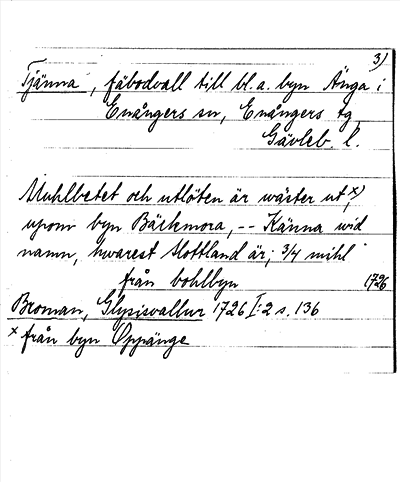 3)
Tjänna, fäbodvall till bl.a. byn Änga i
Enångers sn, Enångers tg
Gävleb. l.
Muhlbetet och utlöten är wäster ut,x)
uponı byn Bäckmora, -- Känna wid
namn, hwarest Slottland är; 3/4 mihl
från bohlbyn 1726
Broman, Glysisvallur 1726 I:2 s. 136
x från byn Oppänge